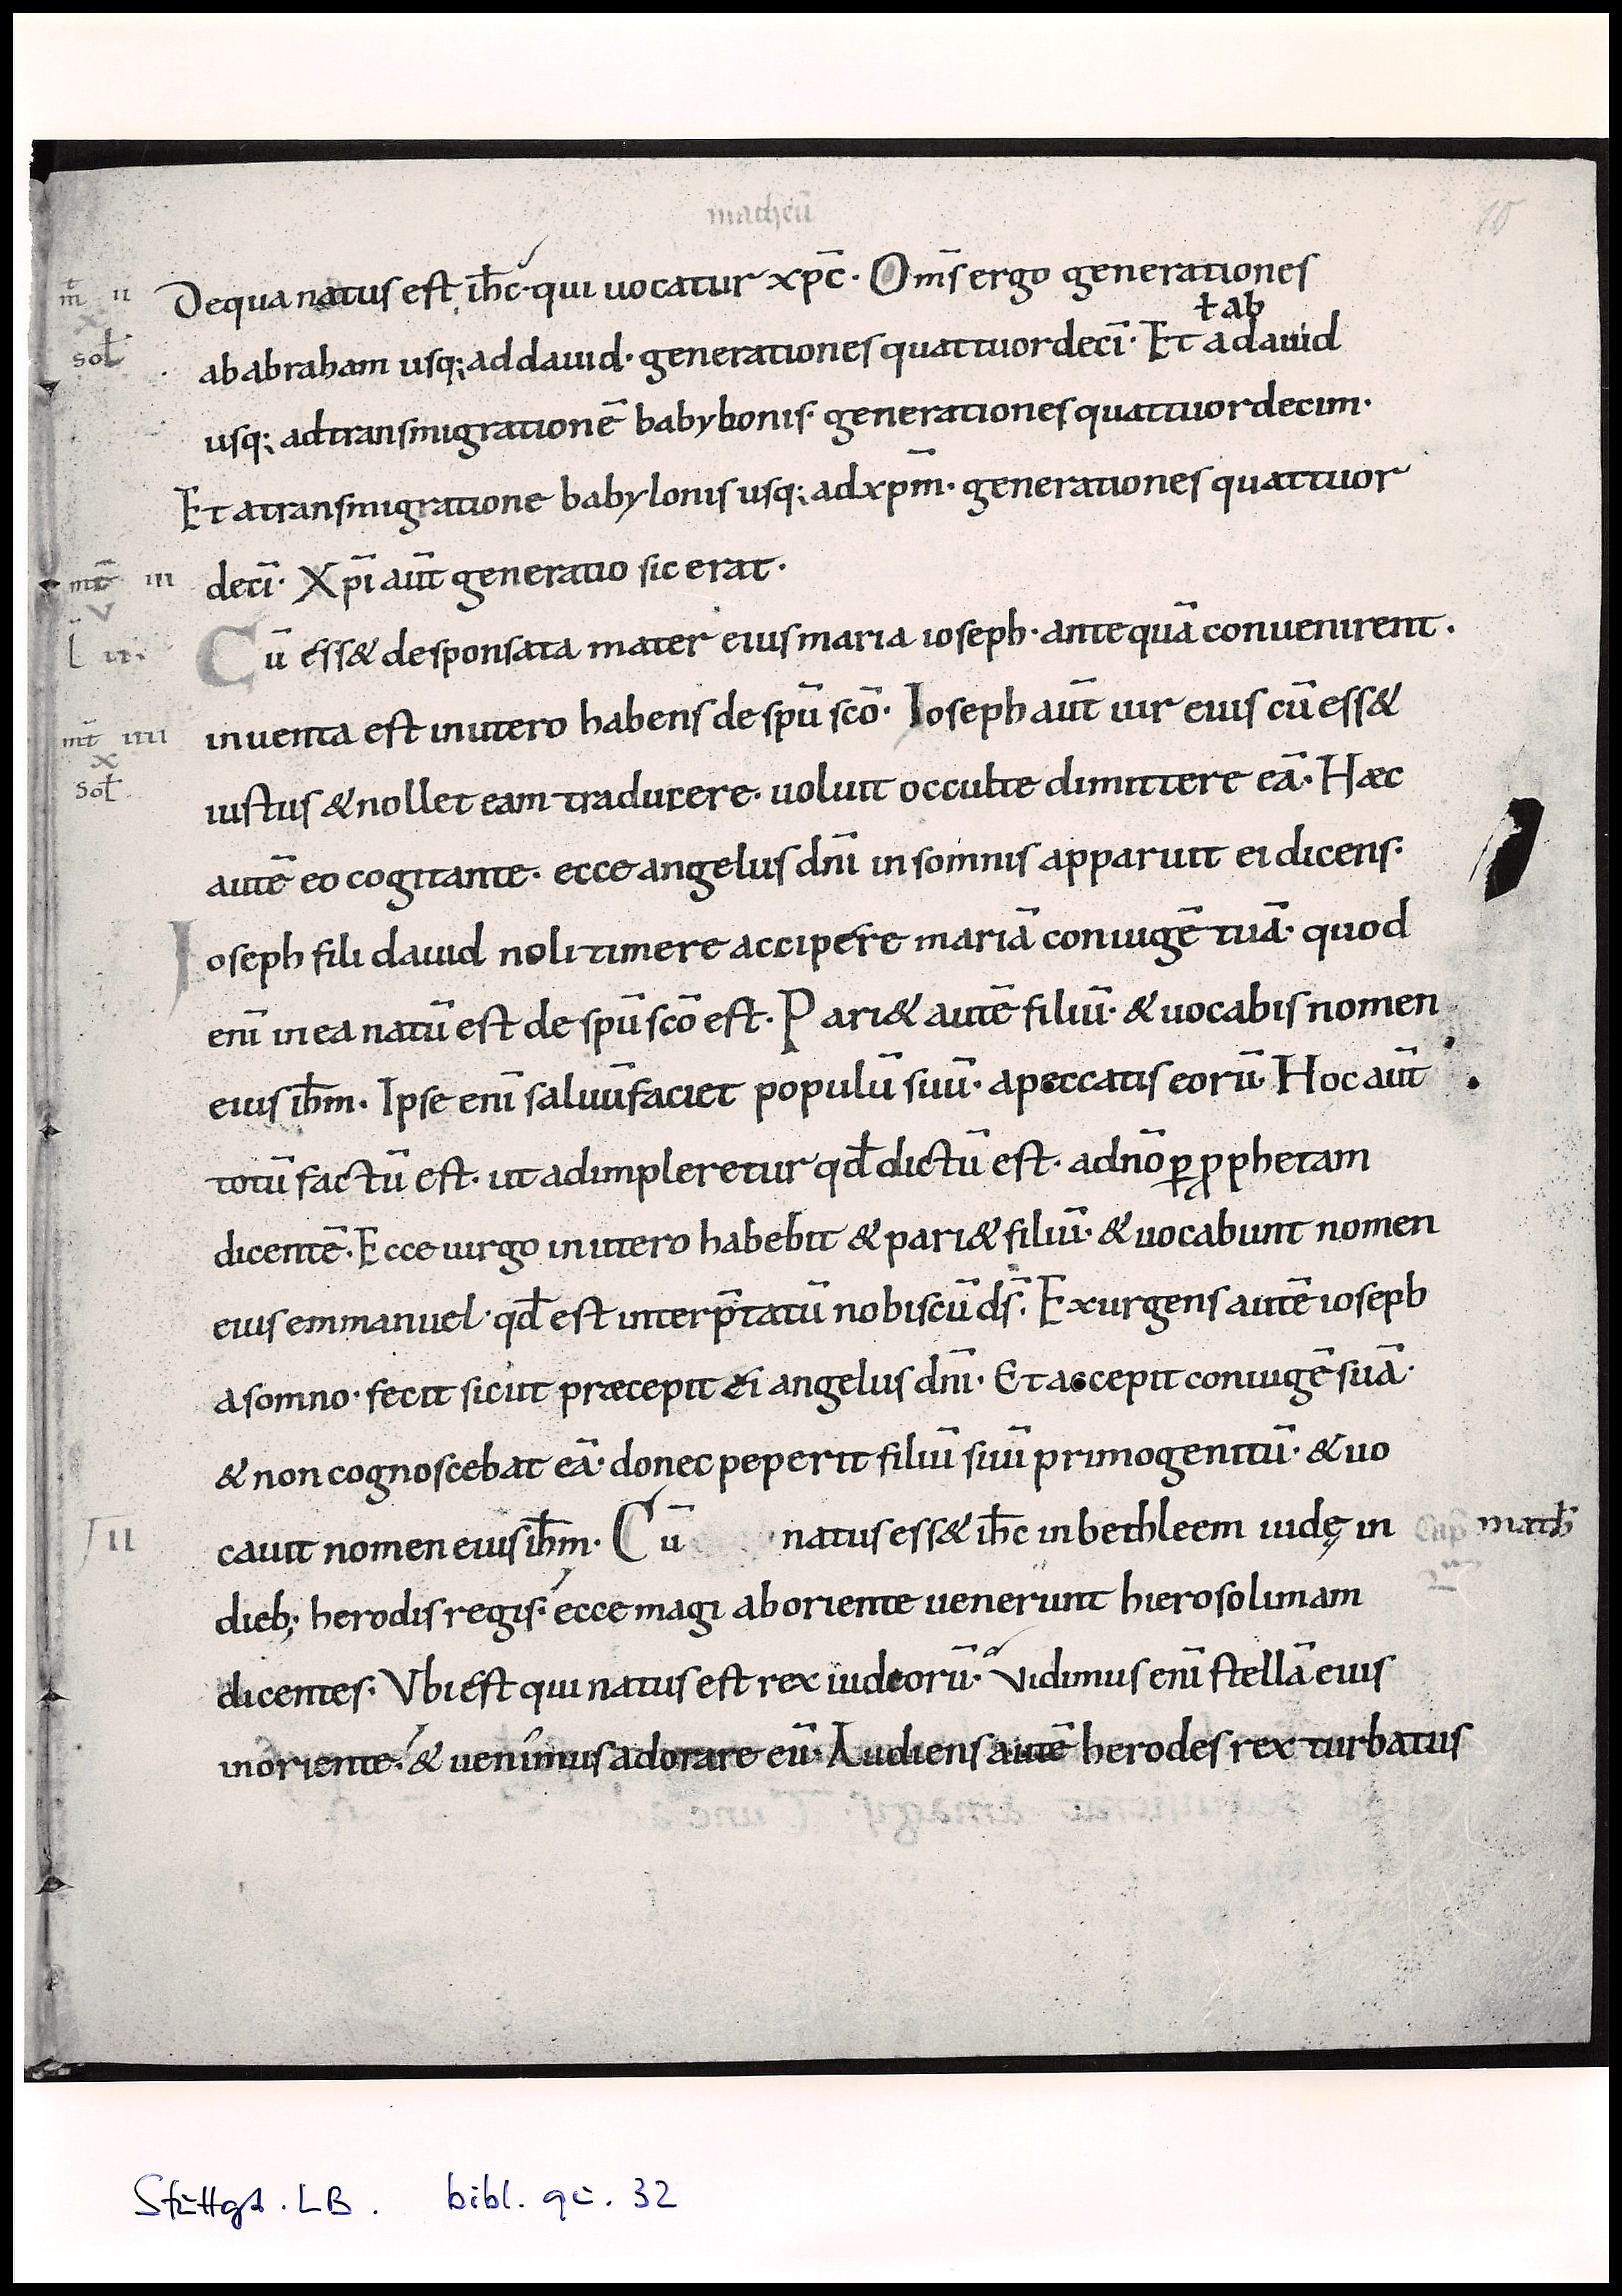 matheū
10
m̄t II Dequa natus est ih̄c· qui uocatur xp̄c· Om̄s ergo generationes
X ł ab
sol̄ ab abraham usq; ad dauid· generationes quattuordecī· Et a dauid
usq; ad transmigrationē babylonis· generationes quattuordecim·
Et a transmigratione babylonis usq; ad xp̄m· generationes quattuor
mt̄ III decī· Xp̄i aūt generatio sic erat·
V
L̄ II· Cū ess& desponsata mater eius maria ioseph· ante quā conuenirent·
mt̄ IIII inuenta est in utero habens de sp̄u scō· Ioseph aūt uir eius cū ess&
X
sol̄ iustus & nollet eam traducere· uoluit occulte dimittere eā· Hæc
autē eo cogitante· ecce angelus dn̄i in somnis apparuit ei dicens·
Ioseph fili dauid noli timere accipere mariā coniugē tuā· quod
enī in ea natū est de sp̄u scō est· Pari& autē filiū· & uocabis nomen
eius ih̄m· Ipse enī saluū faciet populū suū· a peccatis eorū Hoc aūt
totū factū est· ut adimpleretur qd̄ dictū est· a dn̄o ꝑ ꝓphetam
dicentē· Ecce uirgo in utero habebit & pari& filiū· & uocabunt nomen
eius emmanuel· qd̄ est interp̄tatū nobiscū ds̄· Exurgens autē ioseph
a somno· fecit sicut præcepit ei angelus dn̄i· Et accepit coniugē suā·
& non cognoscebat eā· donec peperit filiū suū primogenitū· & uo
II cauit nomen eius ih̄m· Cū natus ess& ih̄c in bethleem iudę in Cap̄ math̄
dieb; herodis regis· ecce magi ab oriente uenerunt hierosolimam
dicentes· Vbi est qui natus est rex iudeorū· Vidimus enī stellā eius
in oriente· & uenimus adorare eū· Audiens autē herodes rex turbatus
Stuttgt. LB. bibl. qu. 32